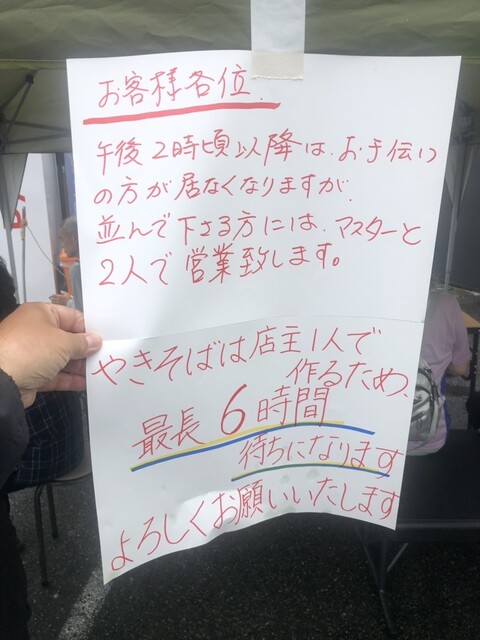 お客様各位.
午後2時頃以降は、お手伝い
の方が居なくなりますが、
並んで下さる方には、マスターと
2人で営業致します。
やきそばは店主1人で
作るため、
最長6時間
待ちになります
よろしくお願いいたします